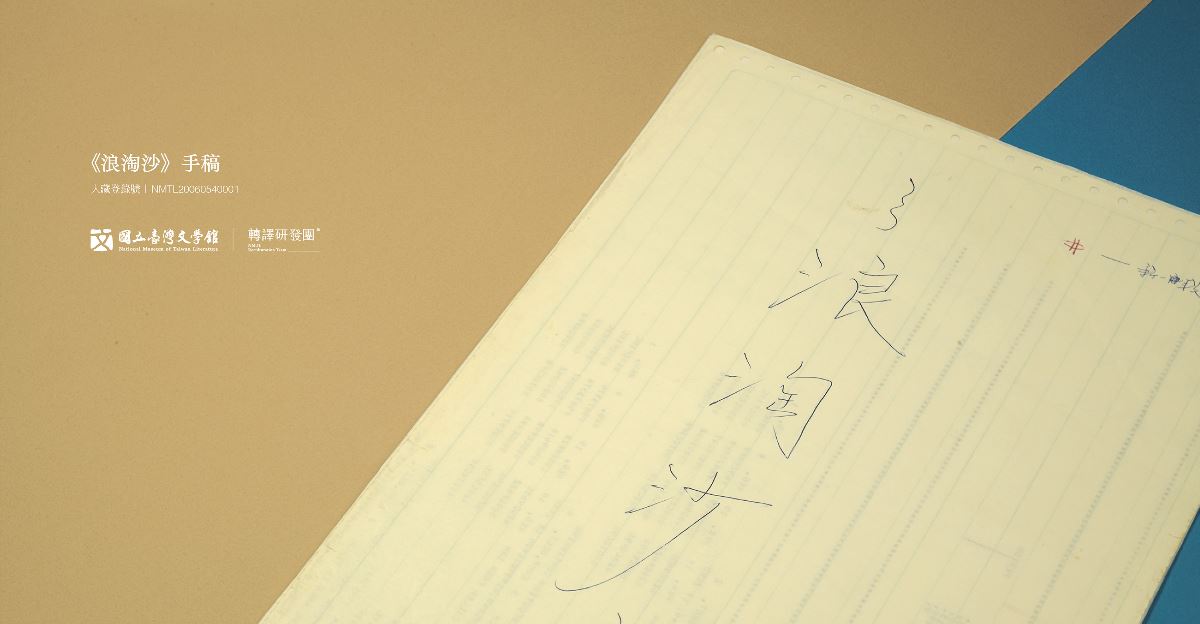 《浪淘沙》手稿
入藏登錄號 | NMTL20060540001
國立臺灣文學館
National Museum of Taiwan Literature
轉譯研發團
浪淘沙